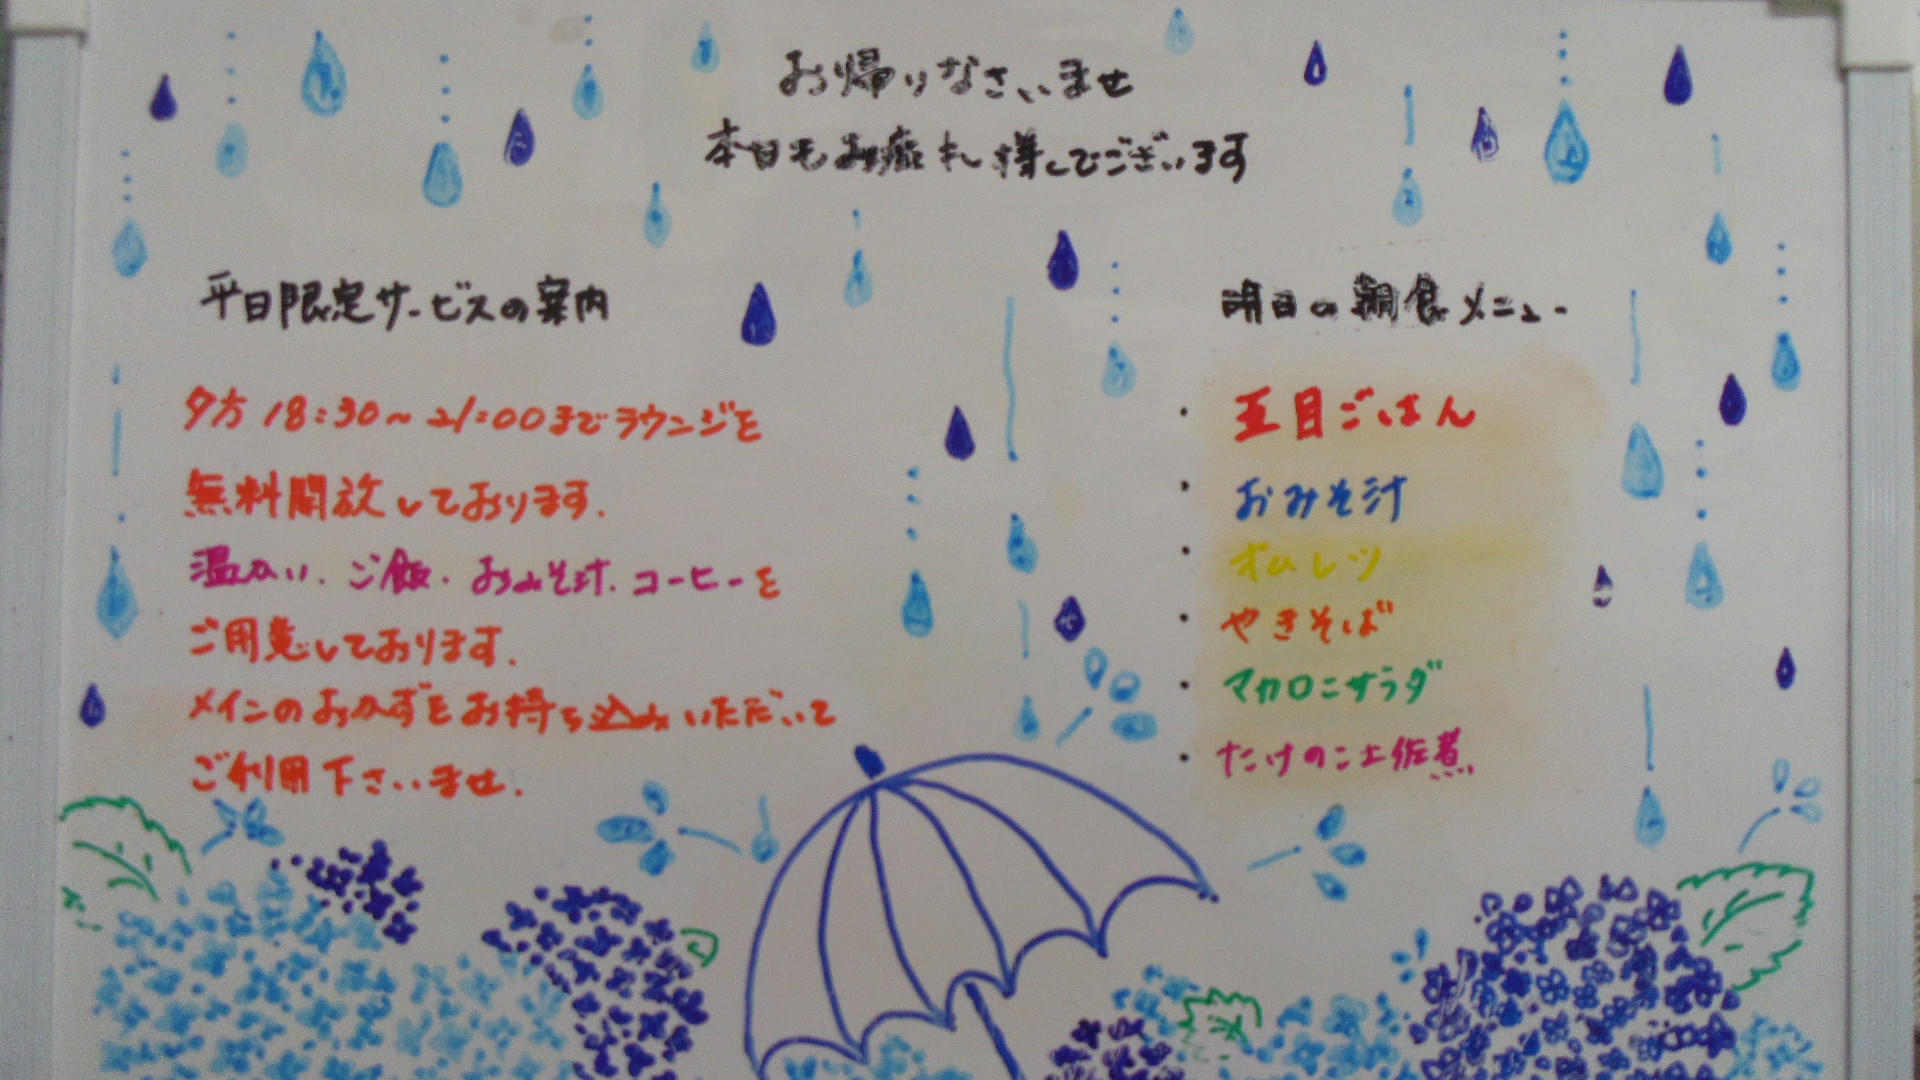 お帰りなさいませ
本日もお疲れ様でございます
平日限定サービスの案内
夕方18:30～21:00までラウンジを
無料開放しております.
温かい.ご飯.おみそ汁.コーヒーを
ご用意しております.
メインのおかずをお持ち込みいただいて
ご利用下さいませ.
明日の朝食メニュー
・五目ごはん
・おみそ汁
・オムレツ
・やきそば
・マカロニサラダ
・たけのこ土佐煮